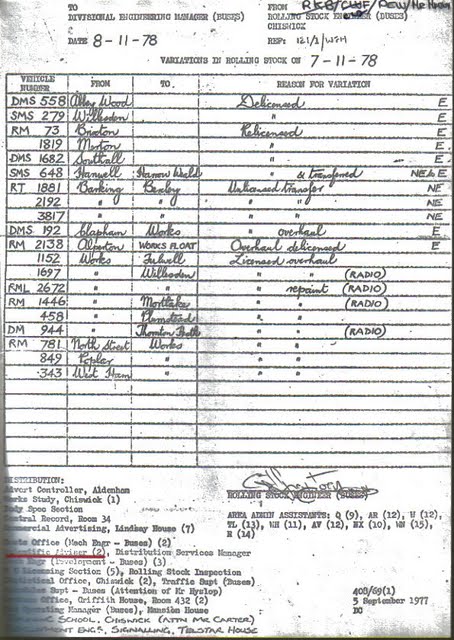 TO FROM RKB/CWF/
DIVISIONAL ENGINEERING MANAGER (BUSES) ROLLING STOCK ENGINEER (BUSES)
CHISWICK
DATE 8-11-78 REF: 121/1/WFH
VARIATIONS IN ROLLING STOCK ON 7-11-78
VEHICLE NUMBER FROM TO REASON FOR VARIATION
DMS 558 Abbey Wood Delicensed E
SMS 279 Willesden " E
RM 73 Brixton Relicensed E
1819 Merton " E
DMS 1682 Southall " E
SMS 648 Hanwell Harrow Weald " & transferred NE & E
RT 1881 Barking Bexley Unlicensed transfer NE
2192 " " " " NE
3817 " " " " NE
DMS 192 Clapham Works " overhaul E
RM 2138 Alperton WORKS FLOAT Overhaul delicensed E
1152 Works Fulwell Licensed overhaul
1697 " Willesden " " (RADIO)
RML 2672 " " " repaint (RADIO)
RM 1446 " Mortlake " " (RADIO)
458 " Plumstead " "
DM 944 " Thornton Heath " " (RADIO)
RM 781 North Street Works " "
849 Poplar " " "
343 West Ham " " "
DISTRIBUTION:
Advert Controller, Aldenham
Works Study, Chiswick (1)
Body Spec Section
Central Record, Room 34
Commercial Advertising, Lindsay House (7)
Office (Mech Engr - Buses) (2)
Scientific Adviser (2), Distribution Services Manager
Engr (Development - Buses) (3)
Licensing Section (5), Rolling Stock Inspection
Office, Chiswick (2), Traffic Supt (Buses)
Supt - Buses (Attention of Mr Hyslop)
Office, Griffith House, Room 432 (2)
Operating Manager (Buses), Mansion House
SCHOOL, CHISWICK (ATTN MR CARTER)
ENGR, SIGNALLING, TELSTAR HOUSE
ROLLING STOCK ENGINEER (BUSES)
AREA ADMIN ASSISTANTS: Q (9), AR (12), W (12)
TL (13), WH (11), AV (12), HX (10), WN (15),
R (14)
40B/69(1)
5 September 1977
DC